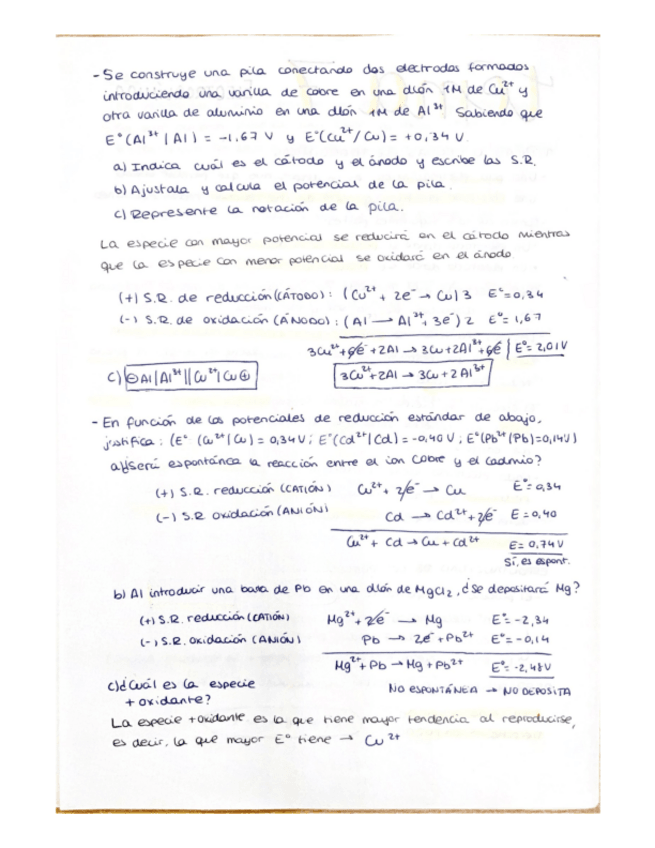 - Se construye una pila conectando dos electrodos formados
introduciendo una varilla de cobre en una dlón 1M de Cu²⁺ y
otra varilla de aluminio en una dlón 1M de Al³⁺ Sabiendo que
E°(Al³⁺|Al) = -1,67 V y E°(Cu²⁺/Cu) = +0,34 V.
a) Indica cuál es el cátodo y el ánodo y escribe las S.R.
b) Ajustala y calcula el potencial de la pila.
c) Represente la notación de la pila.
La especie con mayor potencial se reducirá en el cátodo mientras
que la especie con menor potencial se oxidará en el ánodo
(+) S.R. de reducción (CÁTODO): (Cu²⁺ + 2e⁻ → Cu) 3 E°=0,34
(-) S.R. de oxidación (ÁNODO): (Al → Al³⁺ + 3e⁻) 2 E°= 1,67
3Cu²⁺+6e⁻+2Al → 3Cu+2Al³⁺+6e⁻ | E°= 2,01V
c) ⊖Al|Al³⁺||Cu²⁺|Cu⊕ 3Cu²⁺+2Al → 3Cu + 2Al³⁺
- En función de los potenciales de reducción estándar de abajo,
justifica: (E° (Cu²⁺|Cu) = 0,34V; E°(Cd²⁺|Cd) = -0,40 V; E°(Pb²⁺(Pb)=0,14V)
a) ¿Será espontánea la reacción entre el ion cobre y el cadmio?
(+) S.R. reducción (CATIÓN) Cu²⁺ + 2e⁻ → Cu E°= 0,34
(-) S.R oxidación (ANIÓN) Cd → Cd²⁺ + 2e⁻ E = 0,40
Cu²⁺ + Cd → Cu + Cd²⁺ E = 0,74V
Sí, es espont.
b) Al introducir una barra de Pb en una dlón de MgCl₂, ¿se depositará Mg?
(+) S.R. reducción (CATIÓN) Mg²⁺ + 2e⁻ → Mg E°= -2,34
(-) S.R. oxidación (ANIÓN) Pb → 2e⁻ + Pb²⁺ E°= -0,14
Mg²⁺ + Pb → Mg + Pb²⁺ E°= -2,48V
c) ¿Cuál es la especie NO ESPONTÁNEA → NO DEPOSITA
+ oxidante?
La especie + oxidante es la que tiene mayor tendencia al reproducirse,
es decir, la que mayor E° tiene → Cu²⁺